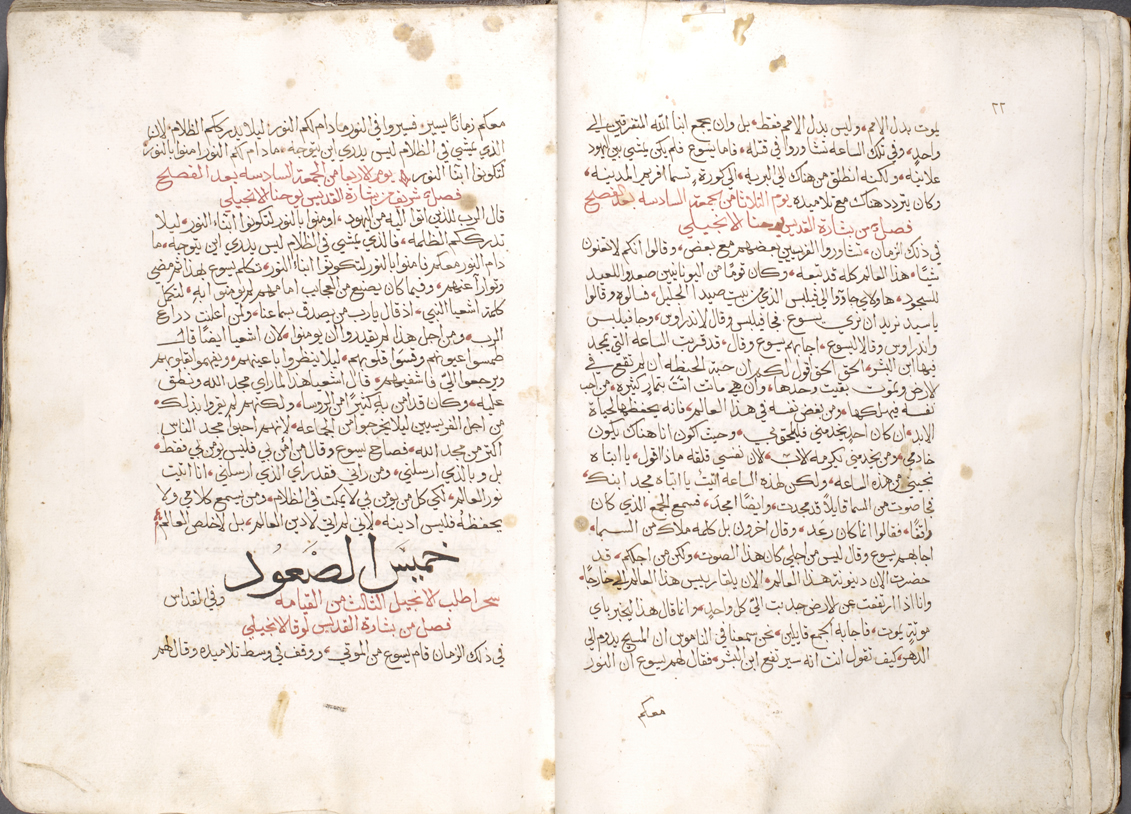 ٢٢
يموت بدل الامم، وليس بدل الامم فقط، بل وان يجمع ابنا الله المتفرقين الى
واحد، وفي تلك الساعه تشاوروا في قتله، فاما يسوع فلم يكن يمشي بين اليهود
علانيه، ولكنه انطلق من هناك الى البريه، الى كورة تسما افريم المدينه،
وكان يتردد هناك مع تلاميذه يوم الثلاثا من الجمعه السادسه بعد الفصح
فصل من بشارة القديس يوحنا الانجيلي
في ذلك الزمان، تشاوروا الفريسيين بعضهم مع بعض، وقالوا انكم لا تغنون
شيًا، هذا العالم كله قد تبعه، وكان قومًا من اليونانيين صعدوا للعيد
للسجود، هاولاي جاوا الى فيلبس الذي من بيت صيدا الجليل، فسالوه وقالوا
يا سيد نريد ان نري يسوع، فجا فيلبس وقال لاندراوس، وجا فيلبس
واندراوس وقالا ليسوع، اجابهم يسوع وقال، قد قربت الساعه التي يمجد
فيها ابن البشر، الحق الحق اقول لكم ان حبة الحنطه ان لم تقع في
لارض وتموت بقيت وحدها، وان هي ماتت اتت بثمار كثيره، من احب
نفسه فيهلكها، ومن بغض نفسه في هذا العالم، فانه يحفظها لحياة
الابد، ان كان احد يخدمني فليلحق بي، وحيث اكون انا هناك يكون
خادمي، ومن يخدمني يكرمه لاب، لان نفسي قلقه ماذا اقول، يا ابتاه
نجيني من هذه الساعه، ولكن لهذه الساعه اتيت يا ابتاه مجد ابنك،
فجا صوت من السما قايلًا قد مجدت، وايضًا امجد، فسمع الجمع الذي كان
واقفًا، فقالوا انما كان رعد، وقال اخرون بل كلمه ملاك من السما،
اجابهم يسوع وقال ليس من اجلي كان هذا الصوت، ولكن من اجلكم، قد
حضرت الان دينونة هذا العالم، الان يلقا رييس هذا العالم الى خارجًا،
وانا اذا ارتفعت عن لارض جدبت الي كل واحد، وانما قال هذا ليخبر باي
موتةٍ يموت، فاجابه الجمع قايلين، نحن سمعنا في الناموس ان المسيح يدوم الى
الدهر، كيف تقول انت انه سيرتفع ابن البشر، فقال لهم يسوع ان النور
معكم
معكم زمانًا يسير، فسيروا في النور ما دام لكم النور، ليلا يدرككم الظلام، لان
الذي يمشي في الظلام ليس يدري اين يتوجه، ما دام لكم النور امنوا بالنور
لتكونوا ابنا النور، يوم لاربعا من الجمعه السادسه بعد الفصح
فصل شريف من بشارة القديس يوحنا الانجيلي
قال الرب للذين اتوا اليه من اليهود، اومنوا بالنور لتكونوا ابناء النور، ليلا
تدرككم الظلمه، فالذي يمشي في الظلام ليس يدري اين يتوجه، ما
دام النور معكم فامنوا بالنور لتكونوا ابنا النور، تكلم يسوع بهذا ثم مضي
وتوارا عنهم، وفيما كان يصنع من العجايب امامهم لم يومنوا به، لتكمل
كلمة اشعيا النبي، اذ قال يارب من يصدق سماعنا، ولمن اعلنت دراع
الرب، ومن اجل هذا لم يقدروا ان يومنوا، لان اشعيا ايضًا قال
طمسوا عيونهم وقسوا قلوبهم، ليلا ينظروا باعينهم، ويفهموا بقلوبهم
ويرجعوا الي فاشفيهم، قال اشعيا هذا لما راي مجد الله ونطق
عليه، وكان قد امن به كثيرًا من الروسا، ولكنهم لم يقروا بذلك،
من اجل الفريسيين ليلا يخرجوا من الجماعه، لانهم احبوا مجد الناس
اكثر من مجد الله، فصاح يسوع وقال من امن بي فليس يومن بي فقط،
بل وبالذي ارسلني، ومن راني فقد راي الذي ارسلني، انا اتيت
نور العالم، لكي كل من يومن بي لا يمكث في الظلام، ومن يسمع كلامي ولا
يحفظه فليس ادينه، لاني لم اتي لادين العالم، بل لاخلص العالم
خميس الصعود
سحرا طلب لانجيل الثالث من القيامه وفي القداس
فصل من بشارة القديس لوقا لانجيلي
في ذلك الزمان قام يسوع من الموتي، ووقف في وسط تلاميذه وقال لهم